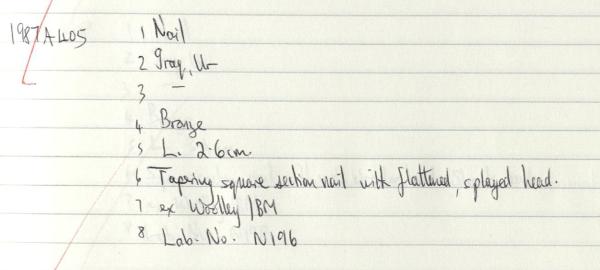 1987A405 1 Nail
2 Iraq, Ur
3 –
4 Bronze
5 L. 2.6cm.
6 Tapering square section nail with flattened, splayed head.
7 ex Woolley/BM
8 Lab. No. N196